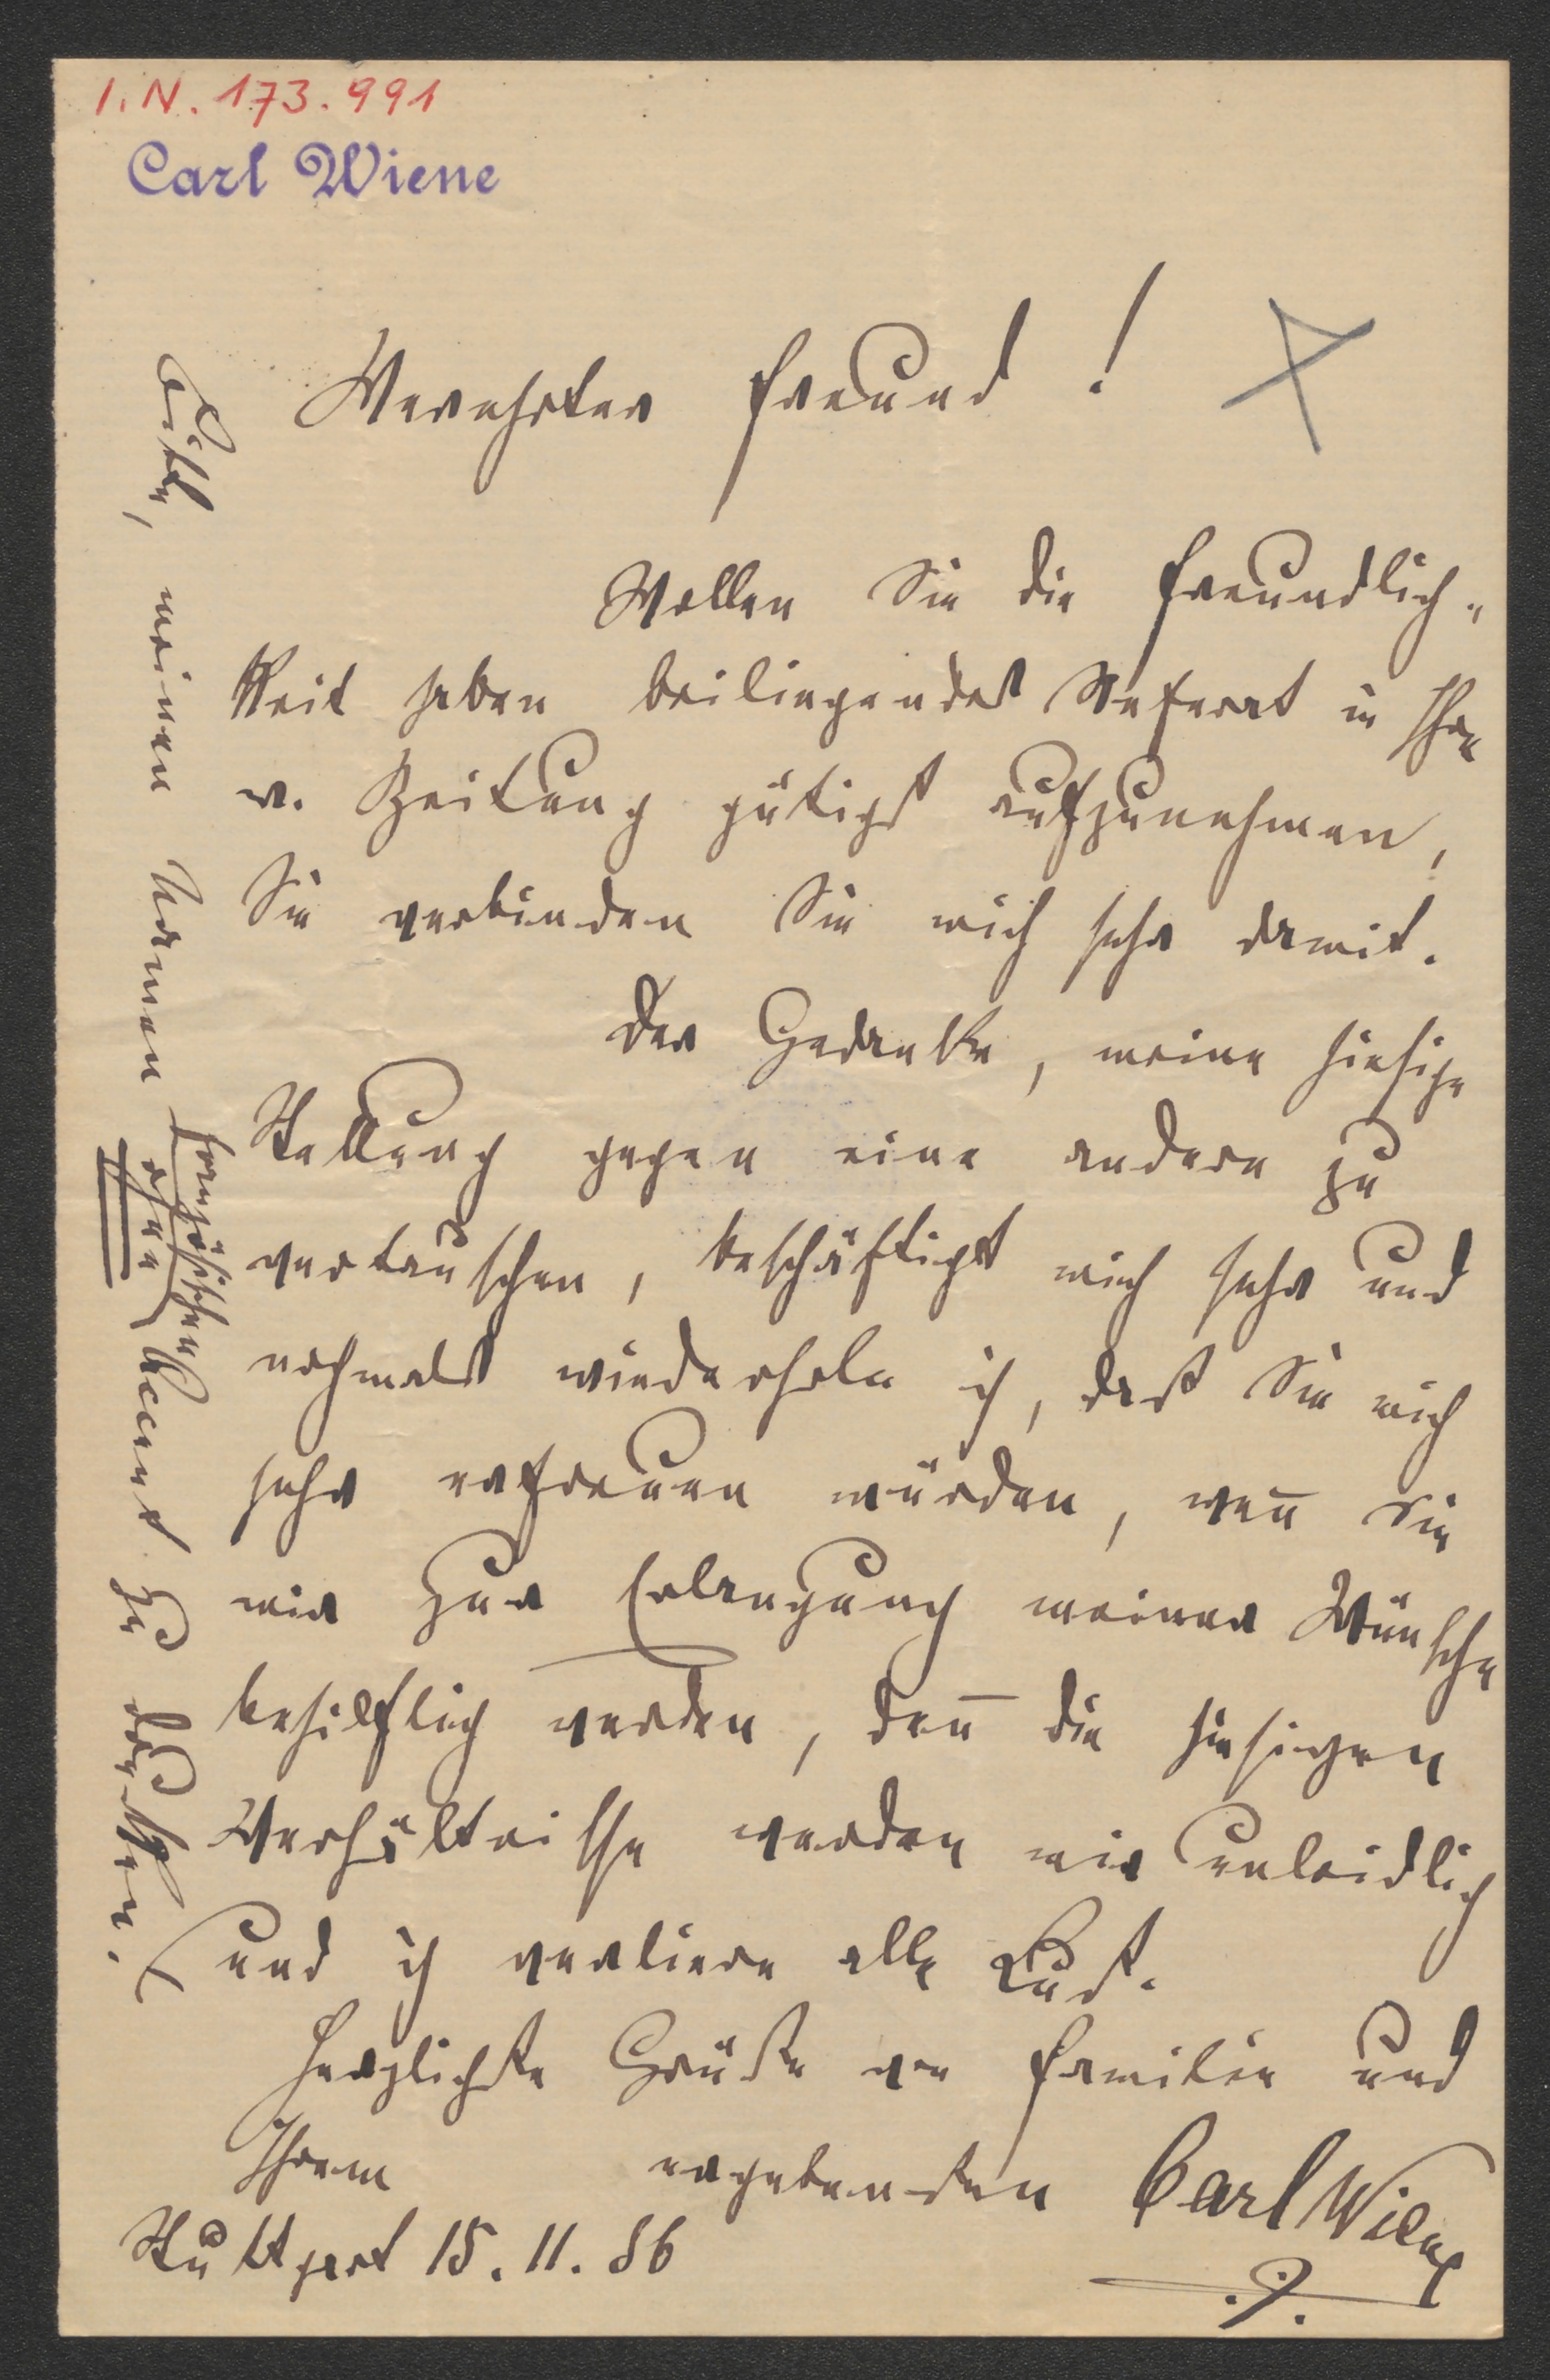 I. N. 173.991
Carl Wiene
Verehrter Freund!
Wollen Sie die Freundlich-
keit haben beiliegendes Referat in Ihre
v. Zeitung gütigst aufzunehmen,
Sie verbinden Sie mich sehr damit.
Der Gedanke, meine hiesige
Stellung gegen eine andere zu
vertauschen, beschäftigt mich sehr und
nochmals wiederhole ich, daß Sie mich
sehr erfreuen würden, wen̄ Sie
mir zur Erlangung meiner Wünsche
behilflich werden, den̄ die hiesigen
Verhältnisse werden mir unleidlich
und ich verliere alle Lust.
Herzlichste Grüße an Familie und
Ihrem ergebensten Carl Wiene
Stuttgart 15. 11. 86
Bitte, meinen Namen ohne
französischen
Accent zu drucken.